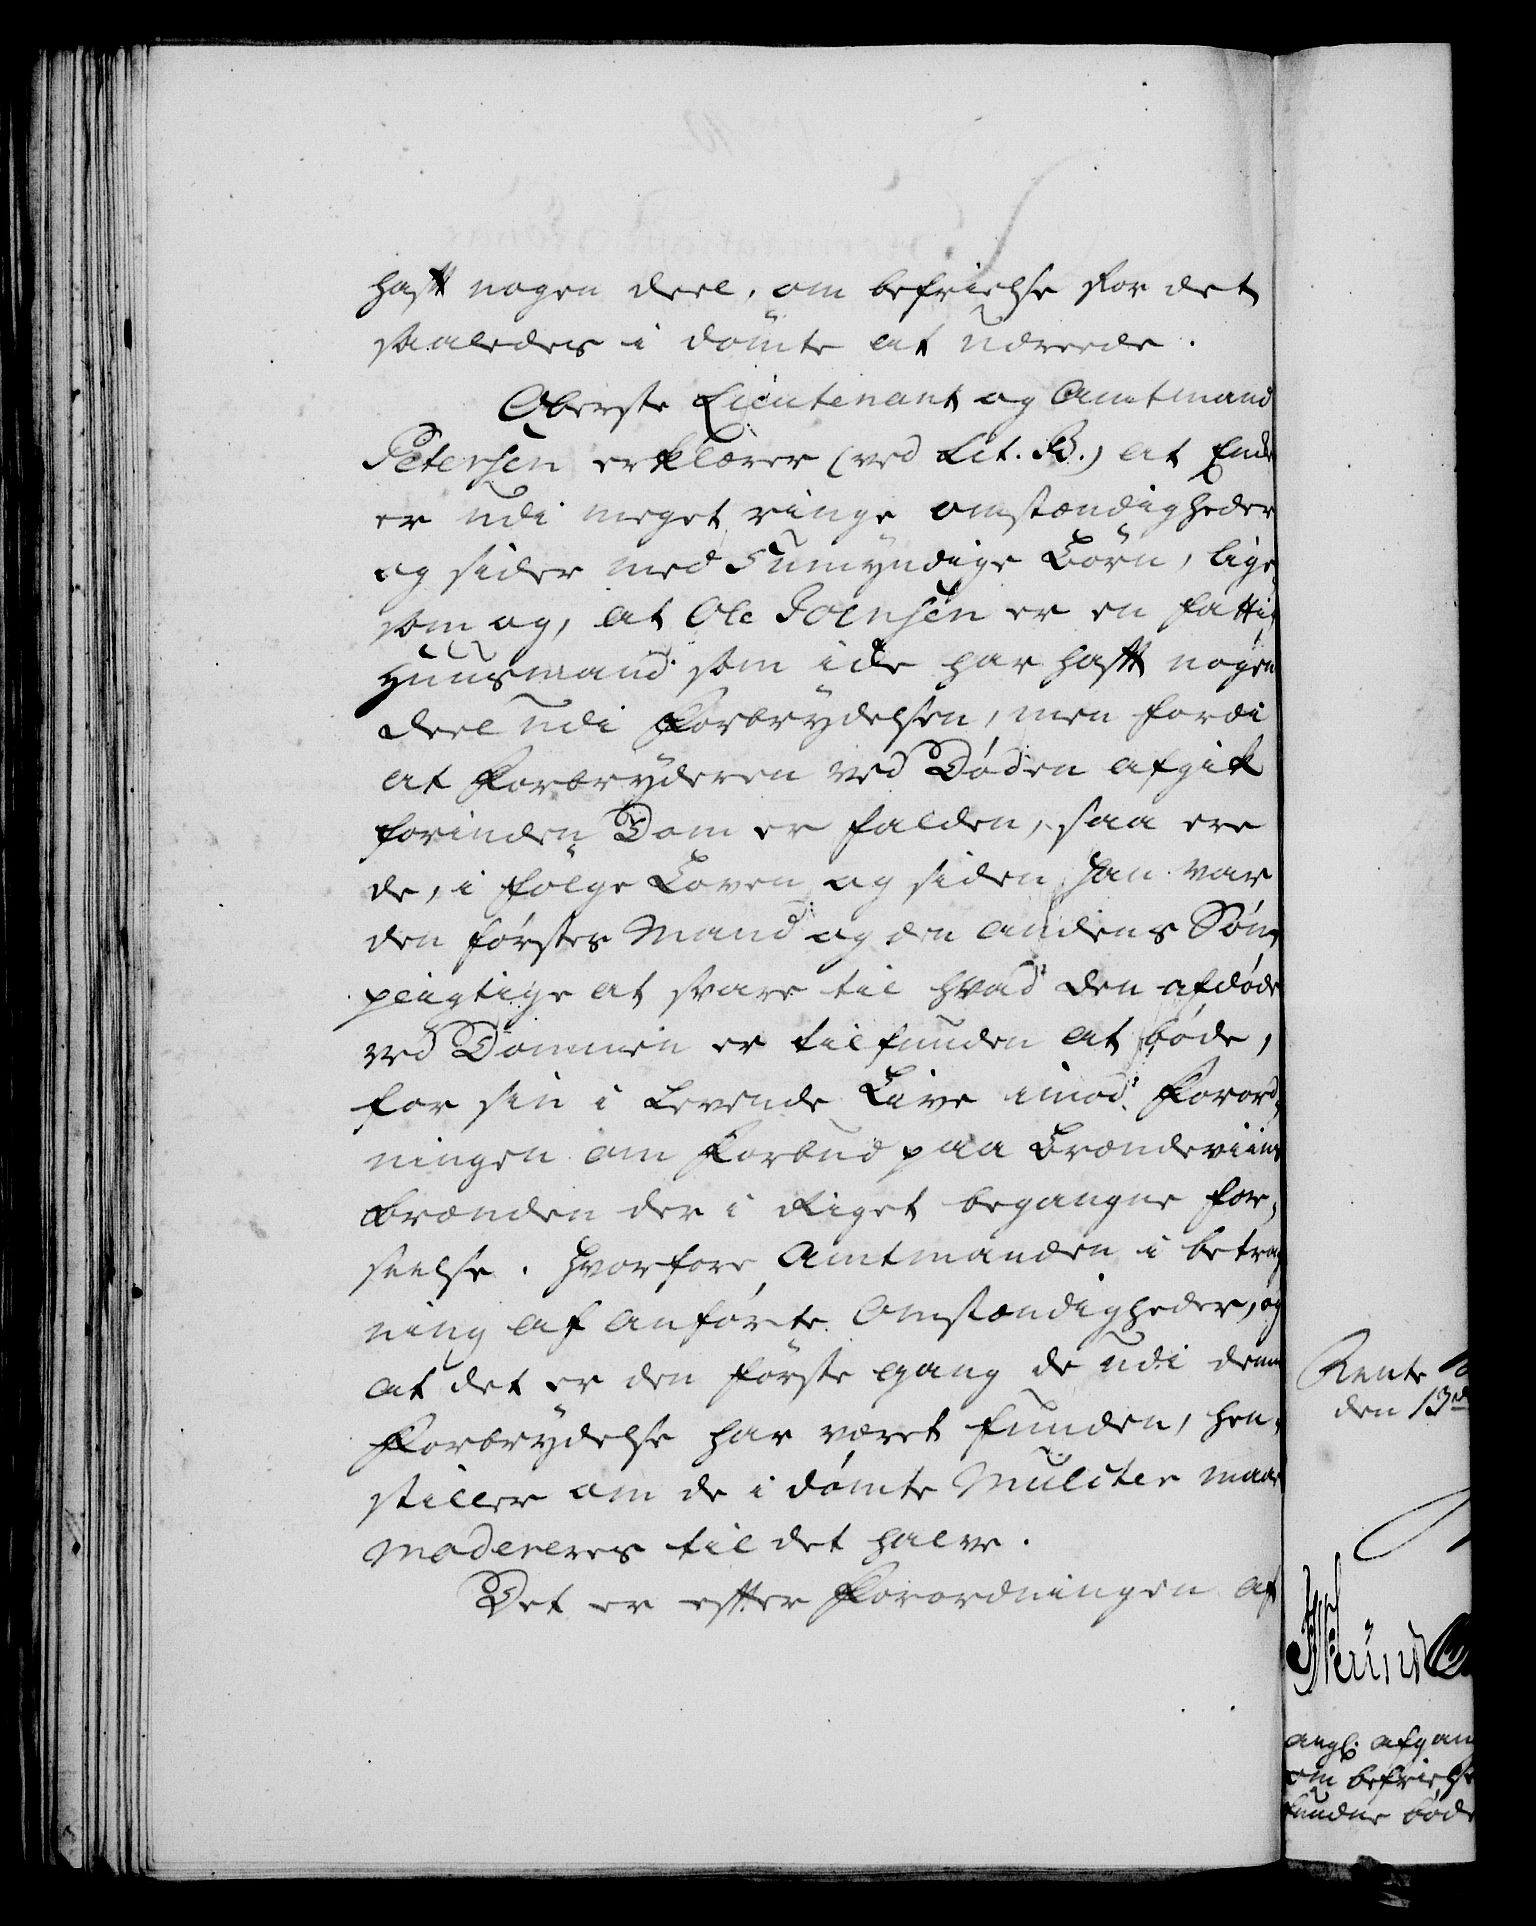 haft nogen deel, om befrielse for det
saaledes i dömte at udreede.
Oberste Lieutenant og Amtmand
Petersen erklærer (ved Lit. B.) at Enk
er udi meget ringe omstændigheder
og sider med 5 umyndige Börn, lige,
som og, at Ole Joensen er en fatti
Huusmand som icke har haft nogen
deel udi Forbrydelsen, men fordi
at Forbryderen ved Döden afgik
forinden Dom er falden, saa ere
de, i fölge Loven og siden han var
den förstes Mand og den andens Sön,
pligtige at svare til hvad den afdöde
ved Dommen er tilfunden at böde,
for sin i Levende Live imod Forord,
ningen om Forbud paa Brændeviins
brænden der i Riget begangne for,
seelse. Hvorfore Amtmanden i betrag
ning af anförte Omstændigheder, og
at det er den förste gang de udi denne
Forbrydelse har været funden, hen,
stiller om de i dömte Mulcter maae
modereres til det halve.
Det er efter Forordningen af
Rente
den 13de
angl. afgan
om befrielse
fundne böde